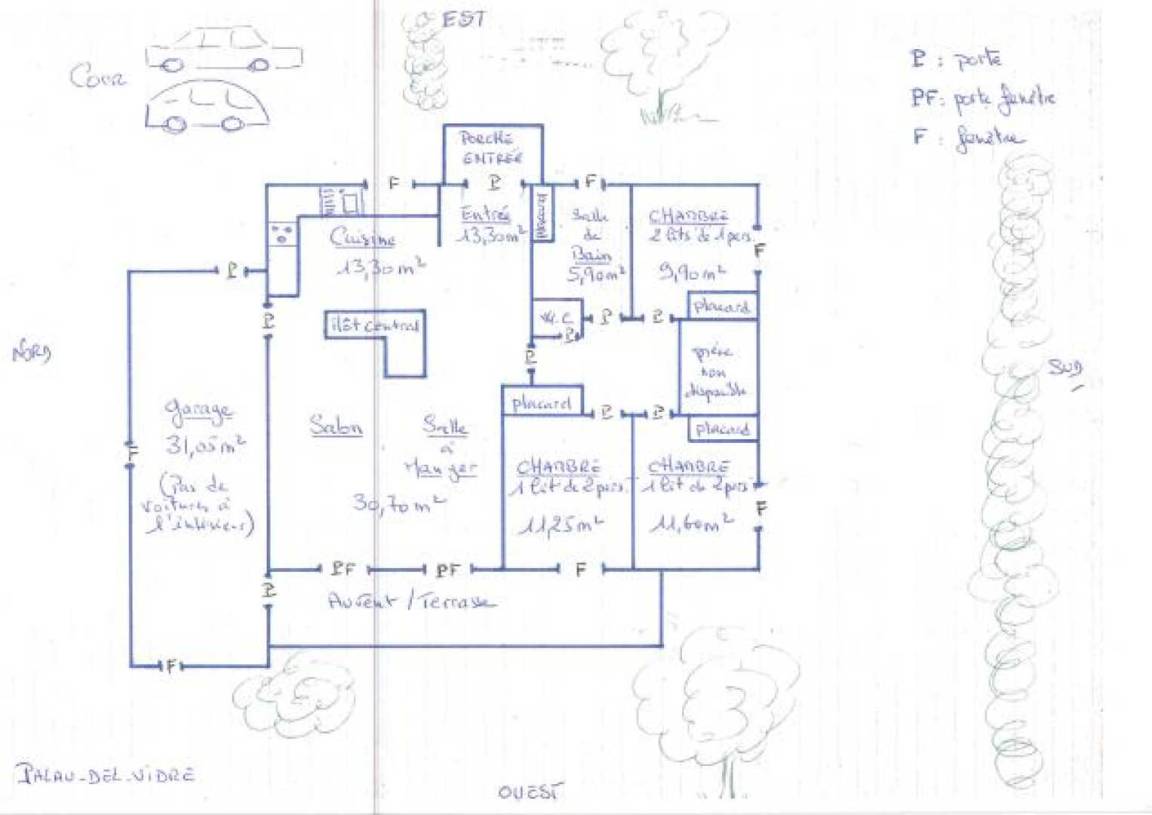 EST
Cour
P : porte
PF : porte fenêtre
F : fenêtre
PORCHE
ENTRÉE
F
P
F
Entrée
13,30 m²
placard
Salle
de
Bain
5,90 m²
CHAMBRE
2 lits de 1 pers.
9,90 m²
F
Cuisine
13,30 m²
P
P
îlôt central
W.C
P
P
P
P
placard
pièce
non
disponible
placard
NORD
SUD
Garage
31,05 m²
(Pas de
voitures à
l'intérieur)
F
Salon
Salle
à
Manger
30,70 m²
placard
P
P
CHAMBRE
1 lit de 2 pers.
11,25 m²
CHAMBRE
1 lit de 2 pers
11,60 m²
F
PF
PF
F
P
Auvent / Terrasse
F
PALAU-DEL-VIDRE
OUEST